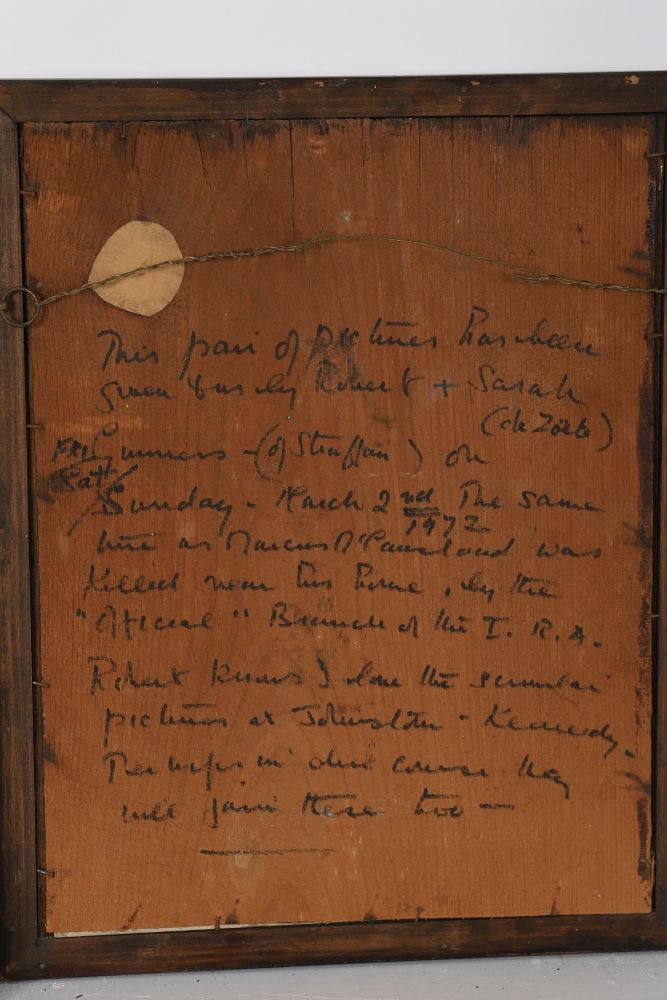 This pair of pictures has been
given to us by Robert + Sarah
(de Zoete)
Guinness - (of Straffan) on
Fri
Sat
Sunday - March 2nd The same
1972
time as Marcus McCausland was
killed near his home, by the
"Official" Branch of the I. R. A.
Robert knows I love the similar
pictures at Johnston - Kennedy.
Perhaps in due course they
will join these two —